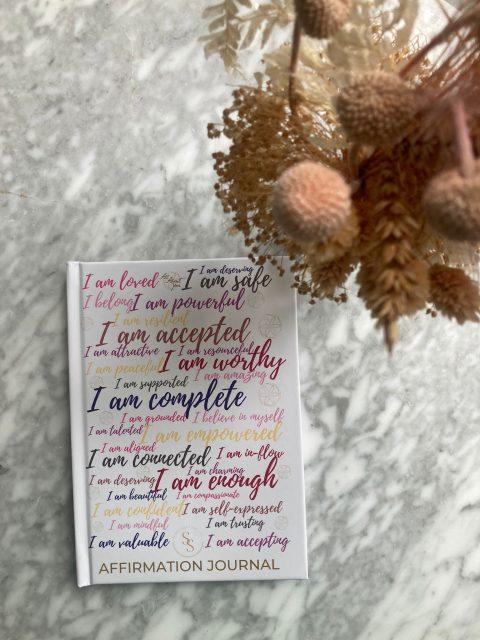 I am loved
I am deserving
I am safe
I belong
I am powerful
I am resilient
I am accepted
I am attractive
I am resourceful
I am peaceful
I am worthy
I am supported
I am amazing
I am complete
I am grounded
I believe in myself
I am talented
I am empowered
I am aligned
I am connected
I am in-flow
I am charming
I am deserving
I am enough
I am beautiful
I am compassionate
I am confident
I am self-expressed
I am mindful
I am trusting
I am valuable
SS
I am accepting
AFFIRMATION JOURNAL